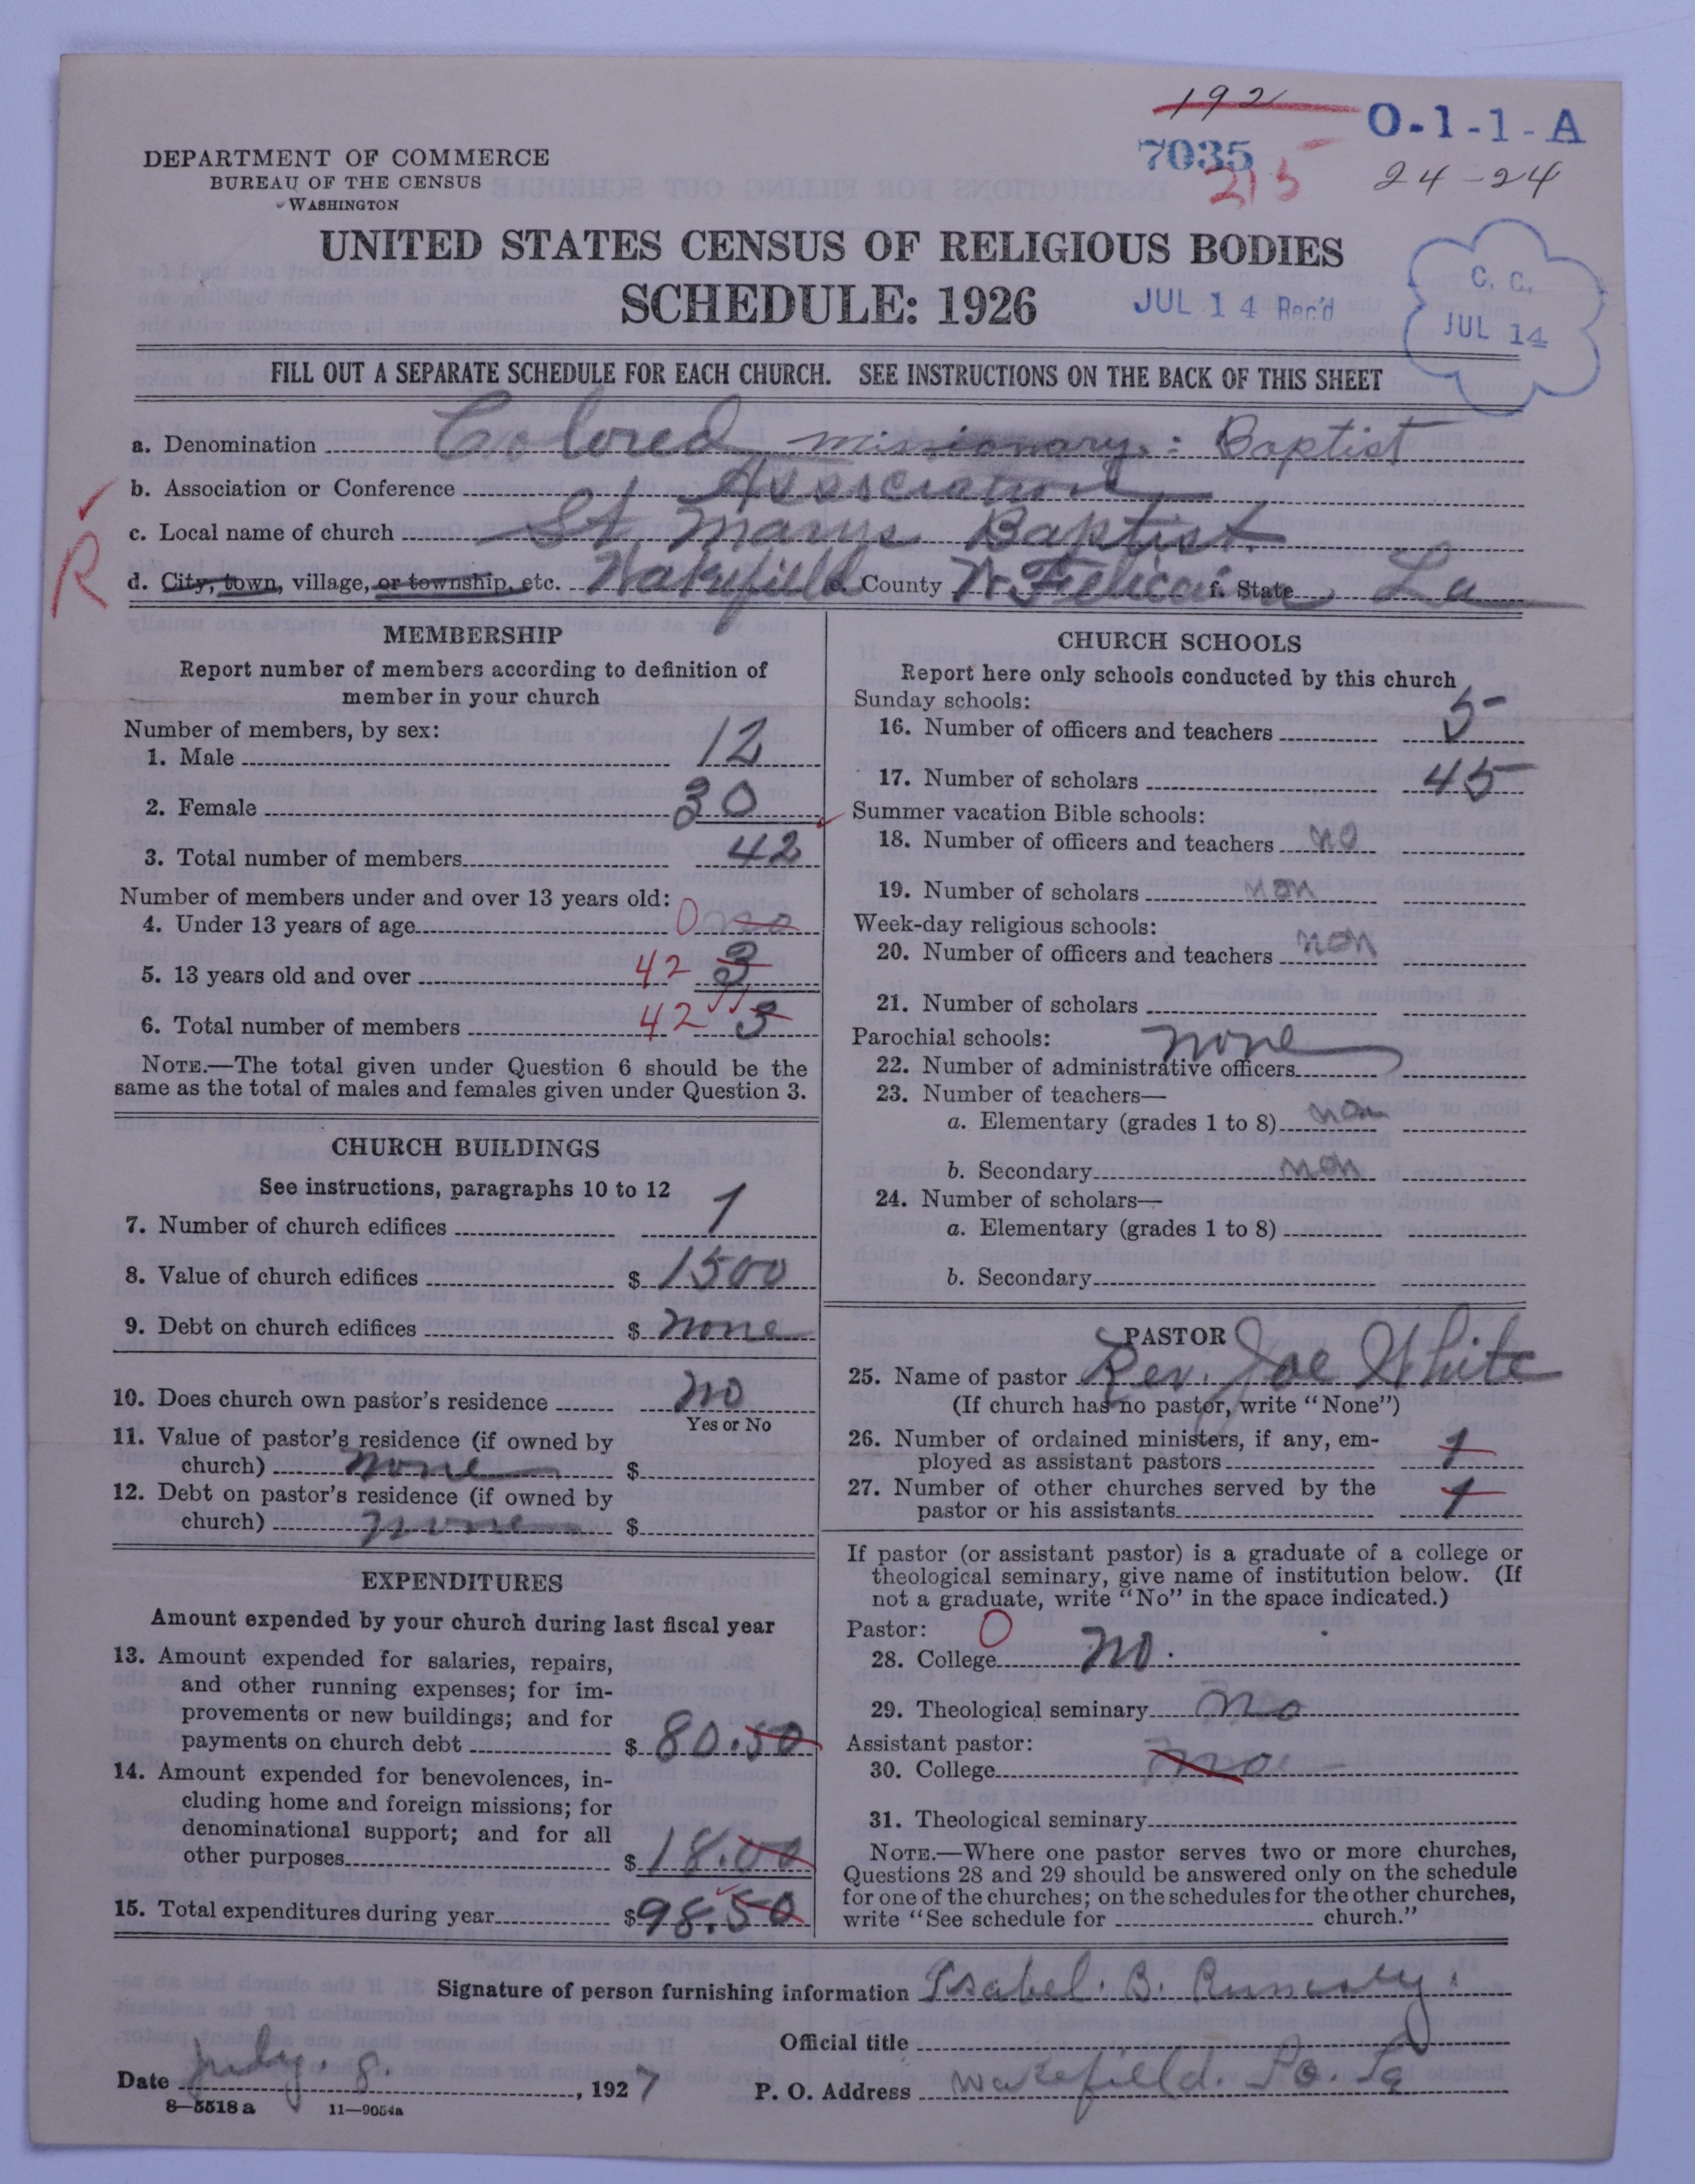 192
7035
215
O-1-1-A
24-24
DEPARTMENT OF COMMERCE
BUREAU OF THE CENSUS
WASHINGTON
UNITED STATES CENSUS OF RELIGIOUS BODIES
SCHEDULE: 1926
JUL 14 Rec'd
C. C.
JUL 14
FILL OUT A SEPARATE SCHEDULE FOR EACH CHURCH. SEE INSTRUCTIONS ON THE BACK OF THIS SHEET
a. Denomination Colored missionary: Baptist
b. Association or Conference
c. Local name of church St Marys Baptist
R
d. City, town, village, or township, etc. Wakefield e. County W. Feliciana f. State La
MEMBERSHIP
Report number of members according to definition of
member in your church
Number of members, by sex:
1. Male 12
2. Female 30
3. Total number of members 42
Number of members under and over 13 years old:
4. Under 13 years of age 0 no
5. 13 years old and over 42 3
6. Total number of members 42 3
NOTE.—The total given under Question 6 should be the
same as the total of males and females given under Question 3.
CHURCH BUILDINGS
See instructions, paragraphs 10 to 12
7. Number of church edifices 1
8. Value of church edifices $ 1500
9. Debt on church edifices $ none
10. Does church own pastor's residence no
Yes or No
11. Value of pastor's residence (if owned by
church) none $
12. Debt on pastor's residence (if owned by
church) none $
EXPENDITURES
Amount expended by your church during last fiscal year
13. Amount expended for salaries, repairs,
and other running expenses; for im-
provements or new buildings; and for
payments on church debt $ 80.50
14. Amount expended for benevolences, in-
cluding home and foreign missions; for
denominational support; and for all
other purposes $ 18.00
15. Total expenditures during year $ 98.50
CHURCH SCHOOLS
Report here only schools conducted by this church
Sunday schools:
16. Number of officers and teachers 5
17. Number of scholars 45
Summer vacation Bible schools:
18. Number of officers and teachers no
19. Number of scholars non
Week-day religious schools:
20. Number of officers and teachers non
21. Number of scholars
Parochial schools: none
22. Number of administrative officers
23. Number of teachers—
a. Elementary (grades 1 to 8) non
b. Secondary non
24. Number of scholars—
a. Elementary (grades 1 to 8)
b. Secondary
PASTOR
25. Name of pastor Rev. Joe White
(If church has no pastor, write "None")
26. Number of ordained ministers, if any, em-
ployed as assistant pastors 1
27. Number of other churches served by the
pastor or his assistants 1
If pastor (or assistant pastor) is a graduate of a college or
theological seminary, give name of institution below. (If
not a graduate, write "No" in the space indicated.)
Pastor: 0
28. College no.
29. Theological seminary no
Assistant pastor:
30. College
31. Theological seminary
NOTE.—Where one pastor serves two or more churches,
Questions 28 and 29 should be answered only on the schedule
for one of the churches; on the schedules for the other churches,
write "See schedule for church."
Signature of person furnishing information Isabel. B.
Official title
Date July. 8. , 1927 P. O. Address Wakefield. Po. La
8—5518 a 11—9054a